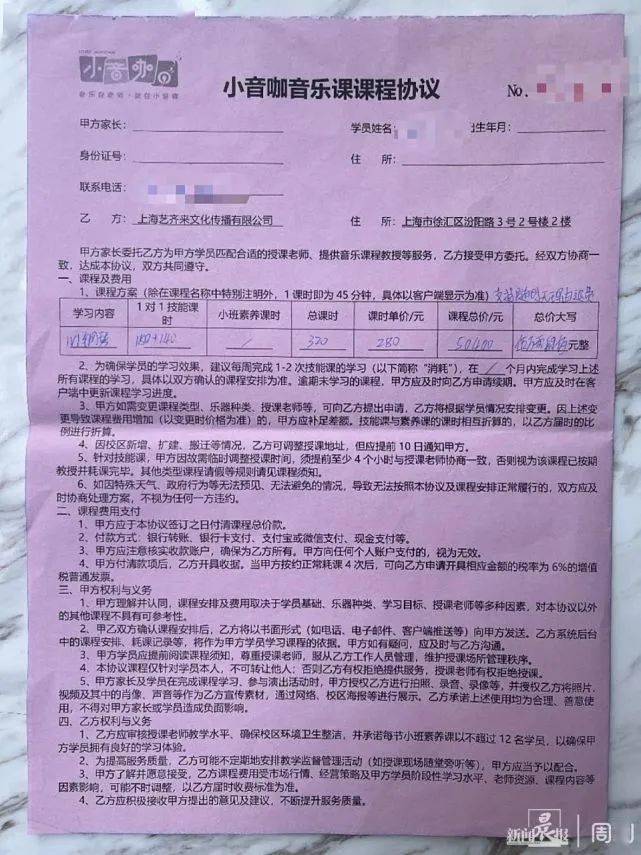 小音咖
小音咖音乐课课程协议
No.
甲方家长：
学员姓名：
出生年月：
身份证号：
住 所：
联系电话：
乙 方：上海艺齐来文化传播有限公司
住 所：上海市徐汇区汾阳路3号2号楼2楼
甲方家长委托乙方为甲方学员匹配合适的授课老师、提供音乐课程教授等服务，乙方接受甲方委托。经双方协商一
致，达成本协议，双方共同遵守。
一、课程及费用
1、课程方案（除在课程名称中特别注明外，1课时即为45分钟，具体以客户端显示为准）
学习内容 1对1技能课时 小班素养课时 总课时 课时单价/元 课程总价/元 总价大写
/ 280 50400 元整
2、为确保学员的学习效果，建议每周完成1-2次技能课的学习（以下简称“消耗”），在 / 个月内完成学习上述
所有课程的学习，具体以双方确认的课程安排为准。逾期未学习的课程，甲方应及时向乙方申请续期。甲方应及时在客
户端中更新课程学习进度。
3、甲方如需变更课程类型、乐器种类、授课老师等，可向乙方提出申请，乙方将根据学员情况安排变更。因上述变
更导致课程费用增加（以变更时价格为准）的，甲方应补足差额。技能课与素养课的课时相互折算的，以乙方届时的比
例进行折算。
4、因校区新增、扩建、搬迁等情况，乙方可调整授课地址，但应提前10日通知甲方。
5、针对技能课，甲方因故需临时调整授课时间，须提前至少4个小时与授课老师协商一致，否则视为该课程已按期
教授并耗课完毕。其他类型课程请假等规则请见课程须知。
6、如因特殊天气、政府行为等无法预见、无法避免的情况，导致无法按照本协议及课程安排正常履行的，双方应及
时协商处理方案，不视为任何一方违约。
二、课程费用支付
1、甲方应于本协议签订之日付清课程总价款。
2、付款方式：银行转账、银行卡支付、支付宝或微信支付、现金支付等。
3、甲方应注意核实收款账户，确保为乙方所有。甲方向任何个人账户支付的，视为无效。
4、甲方付清款项后，乙方开具收据。当甲方按约正常耗课4次后，可向乙方申请开具相应金额的税率为6%的增值
税普通发票。
三、甲方权利与义务
1、甲方理解并认同，课程安排及费用取决于学员基础、乐器种类、学习目标、授课老师等多种因素，对本协议以外
的其他课程不具有可参考性。
2、甲乙双方确认课程安排后，乙方将以书面形式（如电话、电子邮件、客户端推送等）向甲方发送。乙方系统后台
中的课程安排、耗课记录等，将作为甲方学员学习课程的依据。甲方如有疑问，应及时与乙方沟通。
3、甲方学员应提前阅读课程须知，尊重授课老师，服从乙方工作人员管理，维护授课场所管理秩序。
4、本协议课程仅针对学员本人，不可转让他人；否则乙方有权拒绝提供服务，授课老师有权拒绝授课。
5、甲方家长及学员在完成课程学习、参与演出活动时，甲方授权乙方进行拍照、录音、录像等，并授权乙方将照片、
视频及其中的肖像、声音等作为乙方宣传素材，通过网络、校区海报等进行展示。乙方承诺上述使用均为合理、善意使
用，不得对甲方家长或学员造成负面影响。
四、乙方权利与义务
1、乙方应审核授课老师教学水平、确保校区环境卫生整洁，并承诺每节小班素养课以不超过12名学员，以确保甲
方学员拥有良好的学习体验。
2、为提高服务质量，乙方可能不定期地安排教学监督管理活动（如授课现场随堂旁听等），甲方应当予以配合。
3、甲方了解并愿意接受，乙方课程费用受市场行情、经营策略及甲方学员阶段性学习水平、老师资源、课程内容等
因素影响，可能不时调整，以乙方届时收费标准为准。
4、乙方应积极接收甲方提出的意见及建议，不断提升服务质量。
新闻晨报 周